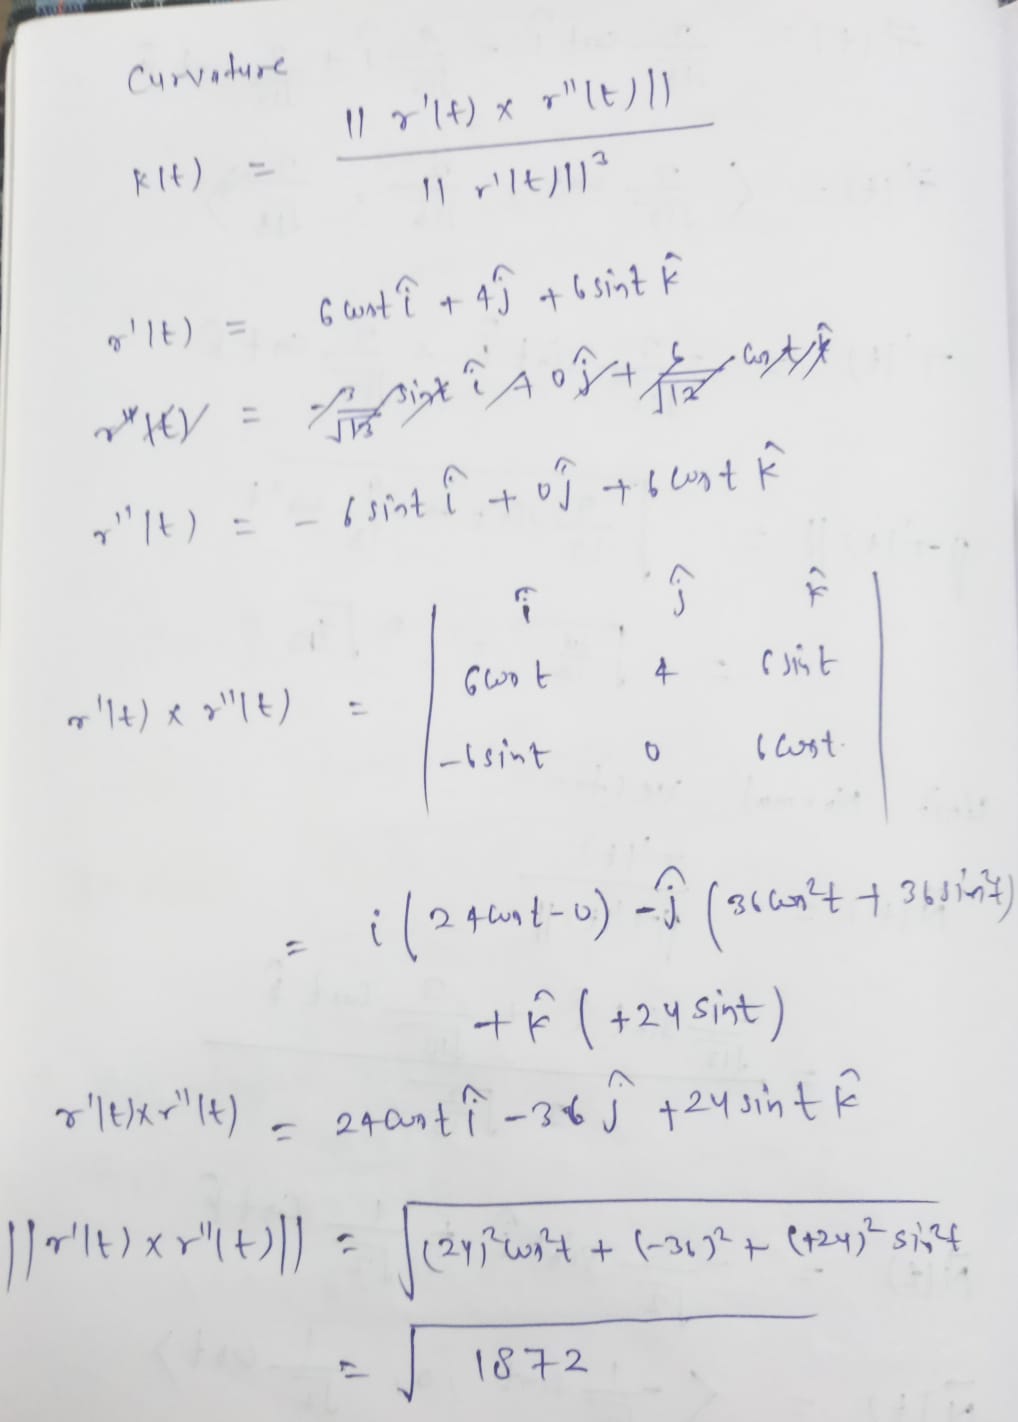 Curvature
k(t) = || r'(t) x r''(t) || / || r'(t) ||³
r'(t) = 6 cost î + 4ĵ + 6 sint k̂
r''(t) = -3/√13 sint î + 0ĵ + 6/√12 cost k̂
r''(t) = - 6 sint î + 0ĵ + 6 cost k̂
î ĵ k̂
6cos t 4 6 sint
r'(t) x r''(t) =
-6sint 0 6 cost.
= i (24cost-0) - ĵ (36cos²t + 36sin²t)
+ k̂ ( +24 sint )
r'(t) x r''(t) = 24cost î - 36 ĵ + 24 sint k̂
|| r'(t) x r''(t) || = √(24)² cos²t + (-36)² + (+24)² sin²t
= √1872